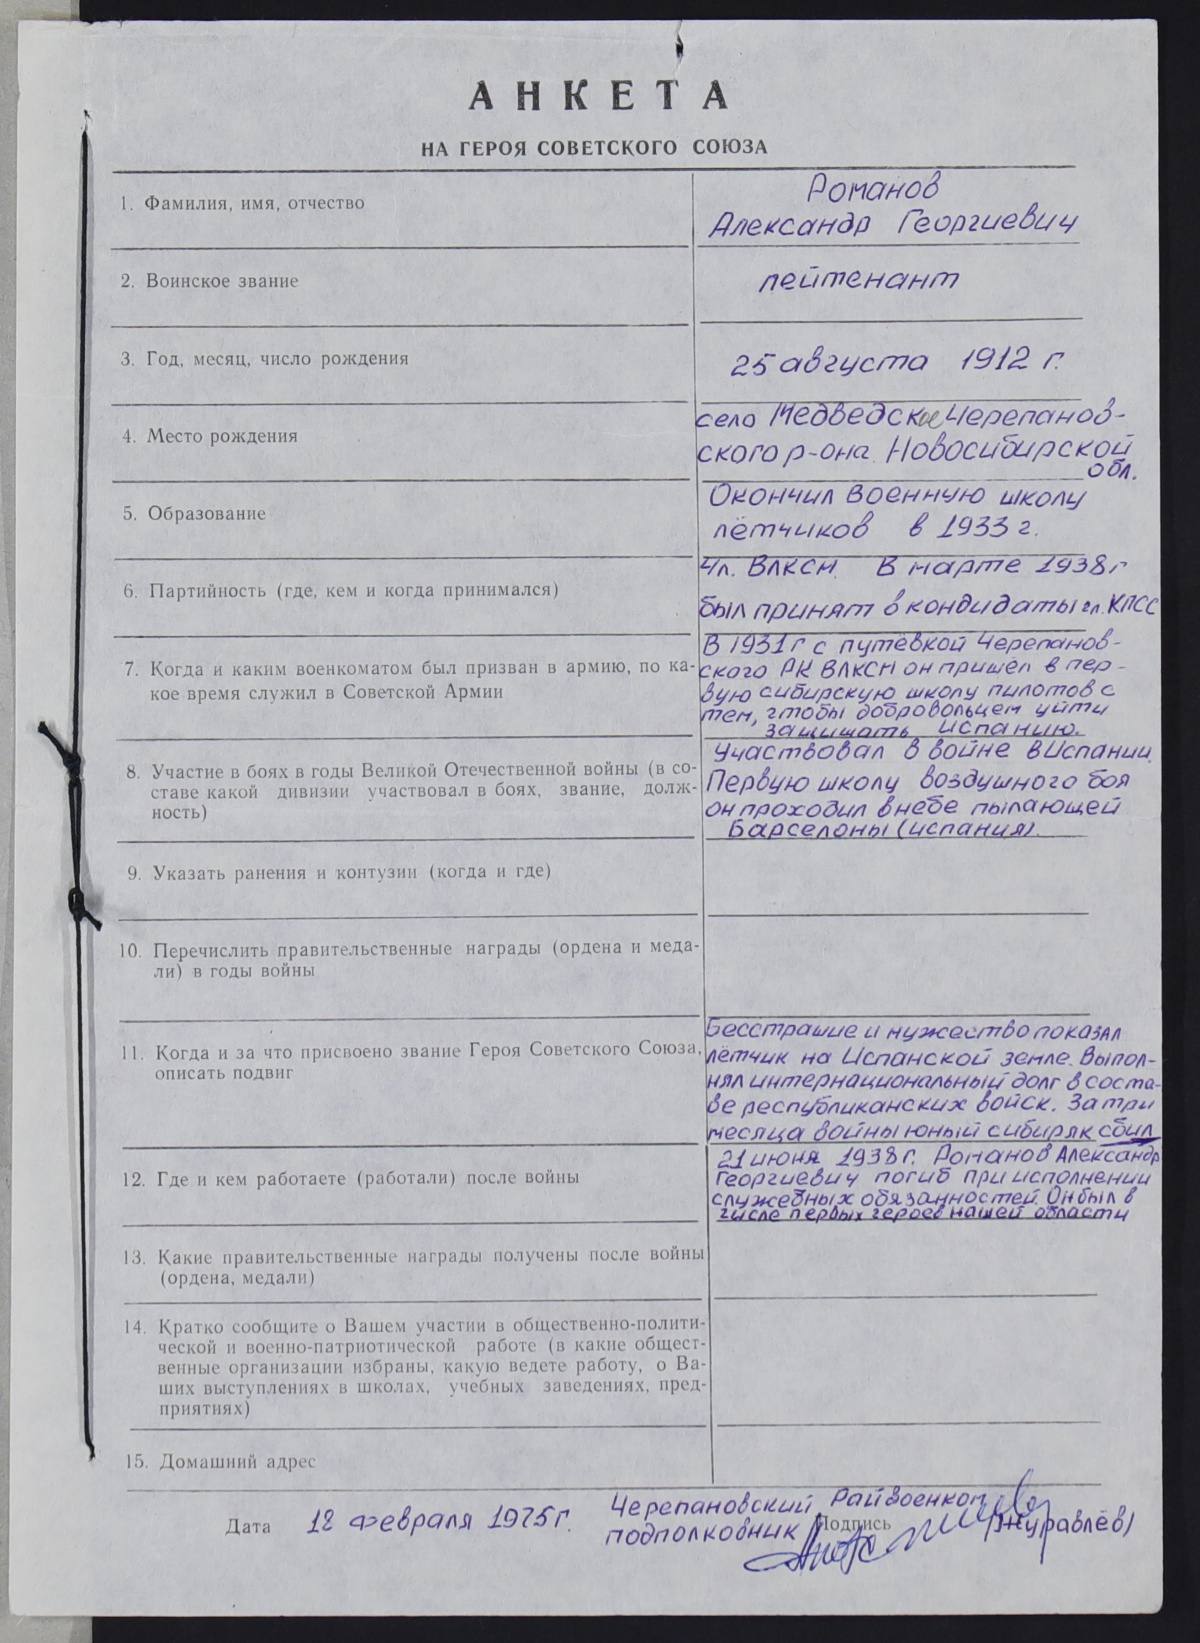 АНКЕТА
НА ГЕРОЯ СОВЕТСКОГО СОЮЗА
1. Фамилия, имя, отчество
Романов
Александр Георгиевич
2. Воинское звание
лейтенант
3. Год, месяц, число рождения
25 августа 1912 г.
4. Место рождения
село Медведское Черепанов-
ского р-она. Новосибирской
обл.
5. Образование
Окончил военную школу
лётчиков в 1933 г.
6. Партийность (где, кем и когда принимался)
Чл. ВЛКСМ. В марте 1938 г
был принят в кондидаты чл. КПСС
7. Когда и каким военкоматом был призван в армию, по ка-
кое время служил в Советской Армии
В 1931 г с путёвкой Черепанов-
ского РК ВЛКСМ он пришел в пер-
вую сибирскую школу пилотов с
тем, чтобы добровольцем уйти
защищать Испанию.
8. Участие в боях в годы Великой Отечественной войны (в со-
ставе какой дивизии участвовал в боях, звание, долж-
ность)
Участвовал в войне в Испании.
Первую школу воздушного боя
он проходил в небе пылающей
Барселоны (испания).
9. Указать ранения и контузии (когда и где)
10. Перечислить правительственные награды (ордена и меда-
ли) в годы войны
11. Когда и за что присвоено звание Героя Советского Союза,
описать подвиг
Бесстрашие и мужество показал
лётчик на Испанской земле. Выпол-
нял интернациональный долг в соста-
ве республиканских войск. За три
месяца войны юный сибиряк сбил
12. Где и кем работаете (работали) после войны
21 июня 1938 г. Романов Александр
Георгиевич погиб при исполнении
служебных обязанностей. Он был в
числе первых героев нашей области
13. Какие правительственные награды получены после войны
(ордена, медали)
14. Кратко сообщите о Вашем участии в общественно-полити-
ческой и военно-патриотической работе (в какие общест-
венные организации избраны, какую ведете работу, о Ва-
ших выступлениях в школах, учебных заведениях, пред-
приятиях)
15. Домашний адрес
Черепановский Райвоенком
Дата 12 февраля 1975 г. подполковник Подпись (Журавлёв)